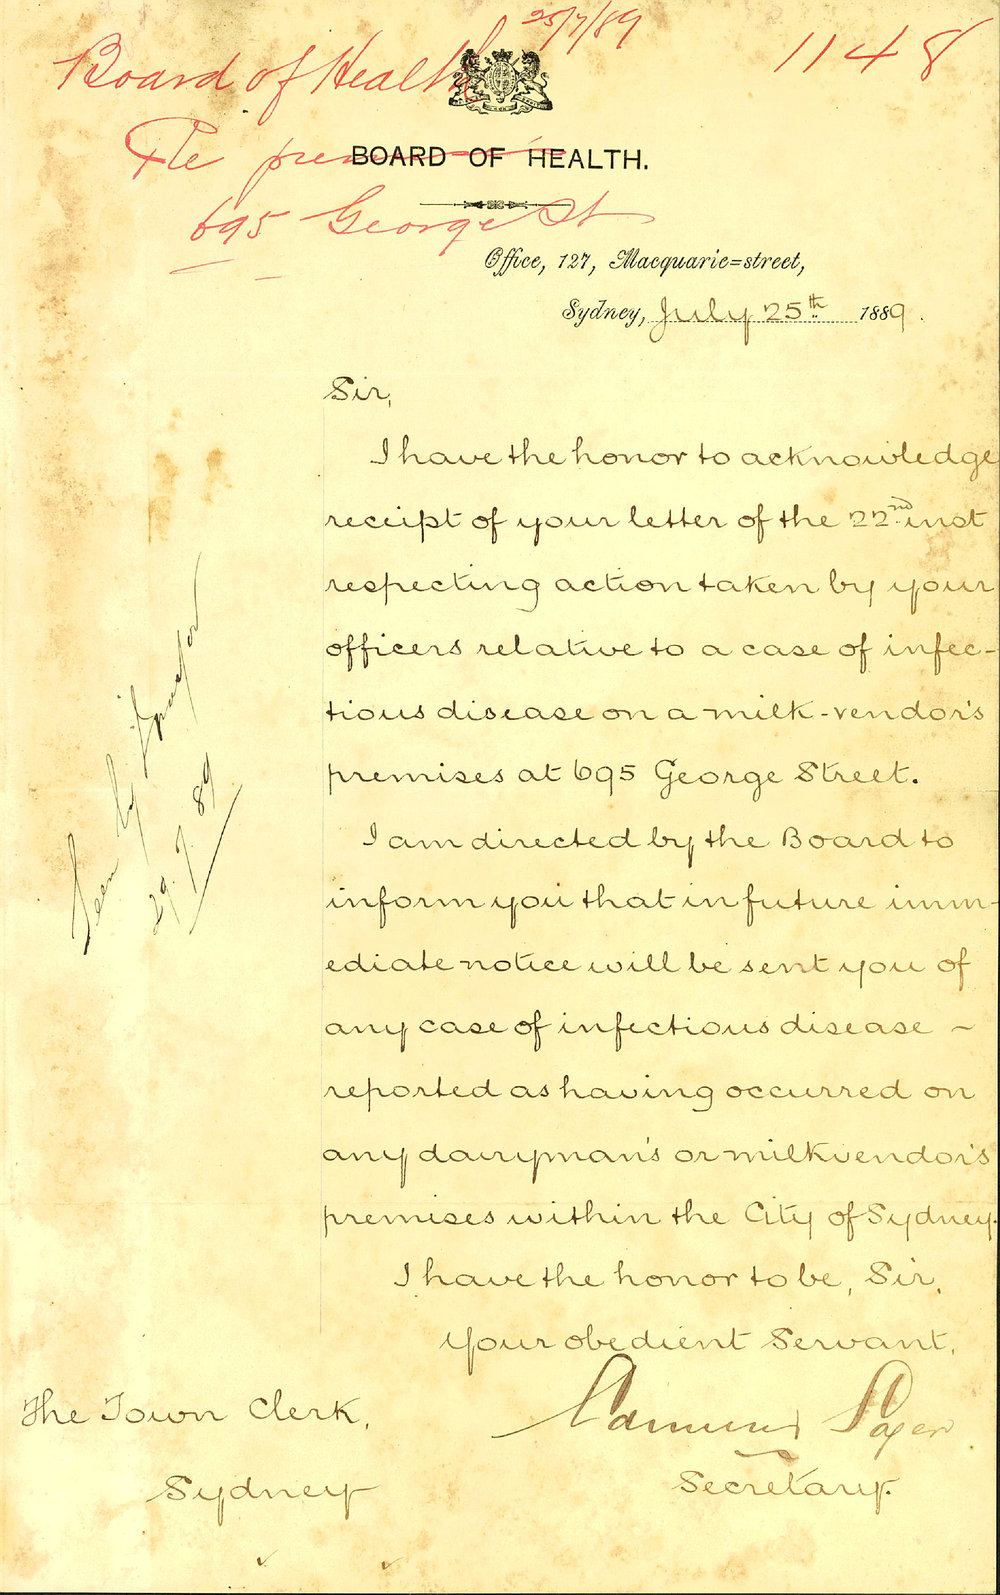 25/7/89
Board of Health
1148
BOARD OF HEALTH.
Re prem
695 George St
Office, 127, Macquarie=street,
Sydney, July 25th 1889.
Sir,
I have the honor to acknowledge
receipt of your letter of the 22nd inst
respecting action taken by your
officers relative to a case of infec-
tious disease on a milk-vendor's
premises at 695 George Street.
I am directed by the Board to
inform you that in future imm-
ediate notice will be sent you of
any case of infectious disease -
reported as having occurred on
any dairyman's or milkvendor's
premises within the City of Sydney.
I have the honor to be, Sir,
Your obedient Servant,
Edmund Sager
Secretary.
The Town Clerk,
Sydney
Seen by Inspector
29.7.89